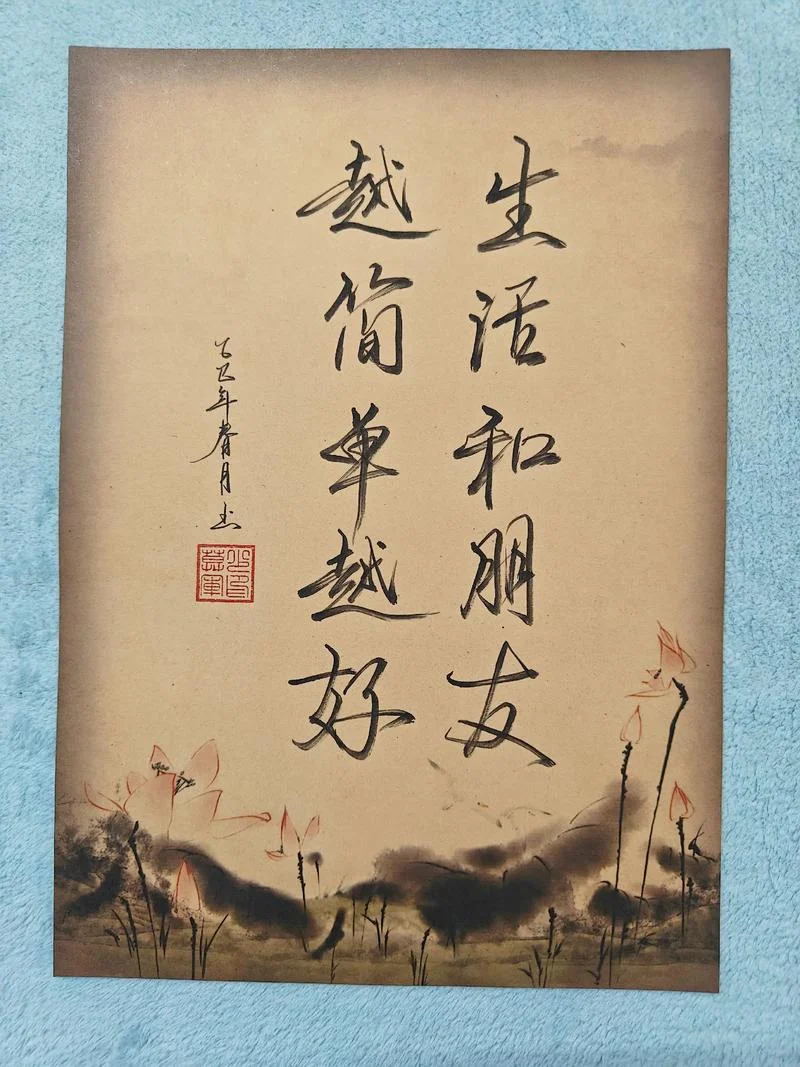 生活和朋友
越简单越好
乙巳年春月书